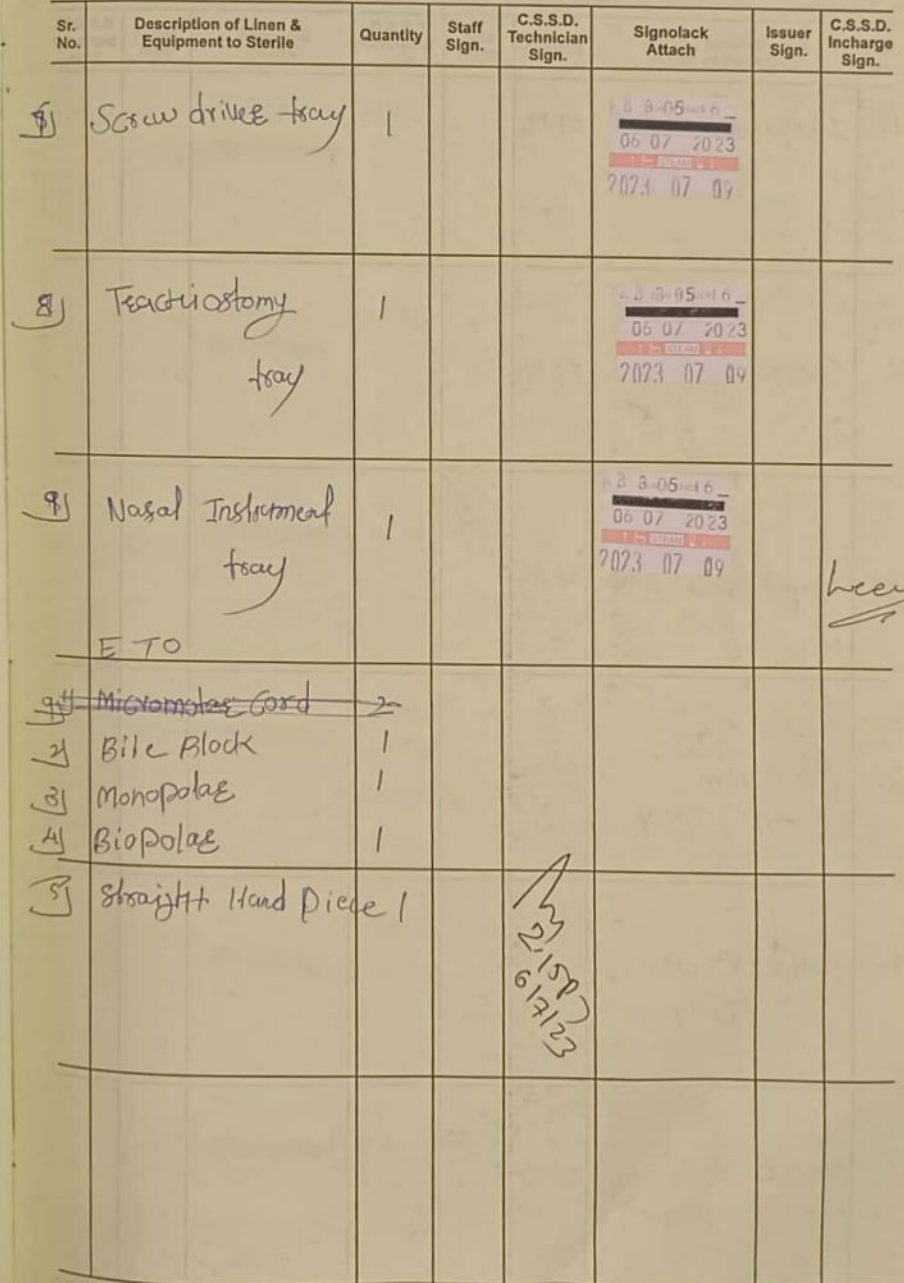 Sr. No. Description of Linen & Equipment to Sterile Quantity Staff Sign. C.S.S.D. Technician Sign. Signolack Attach Issuer Sign. C.S.S.D. Incharge Sign.
Screw driver tray 1
B 3-05 6_
06 07 2023
STEAM
2023 07 09
8) Teachiostomy 1
tray
3-05 6_
06 07 2023
STEAM
2023 07 09
9) Nasal Instrument 1
tray
B 3-05 6_
06 07 2023
STEAM
2023 07 09
ETO
Micromoter Cord 2
2) Bile Block 1
3) Monopolar 1
4) Biopolar 1
5) Straight Hand Piece 1
2.15p
6/7/23